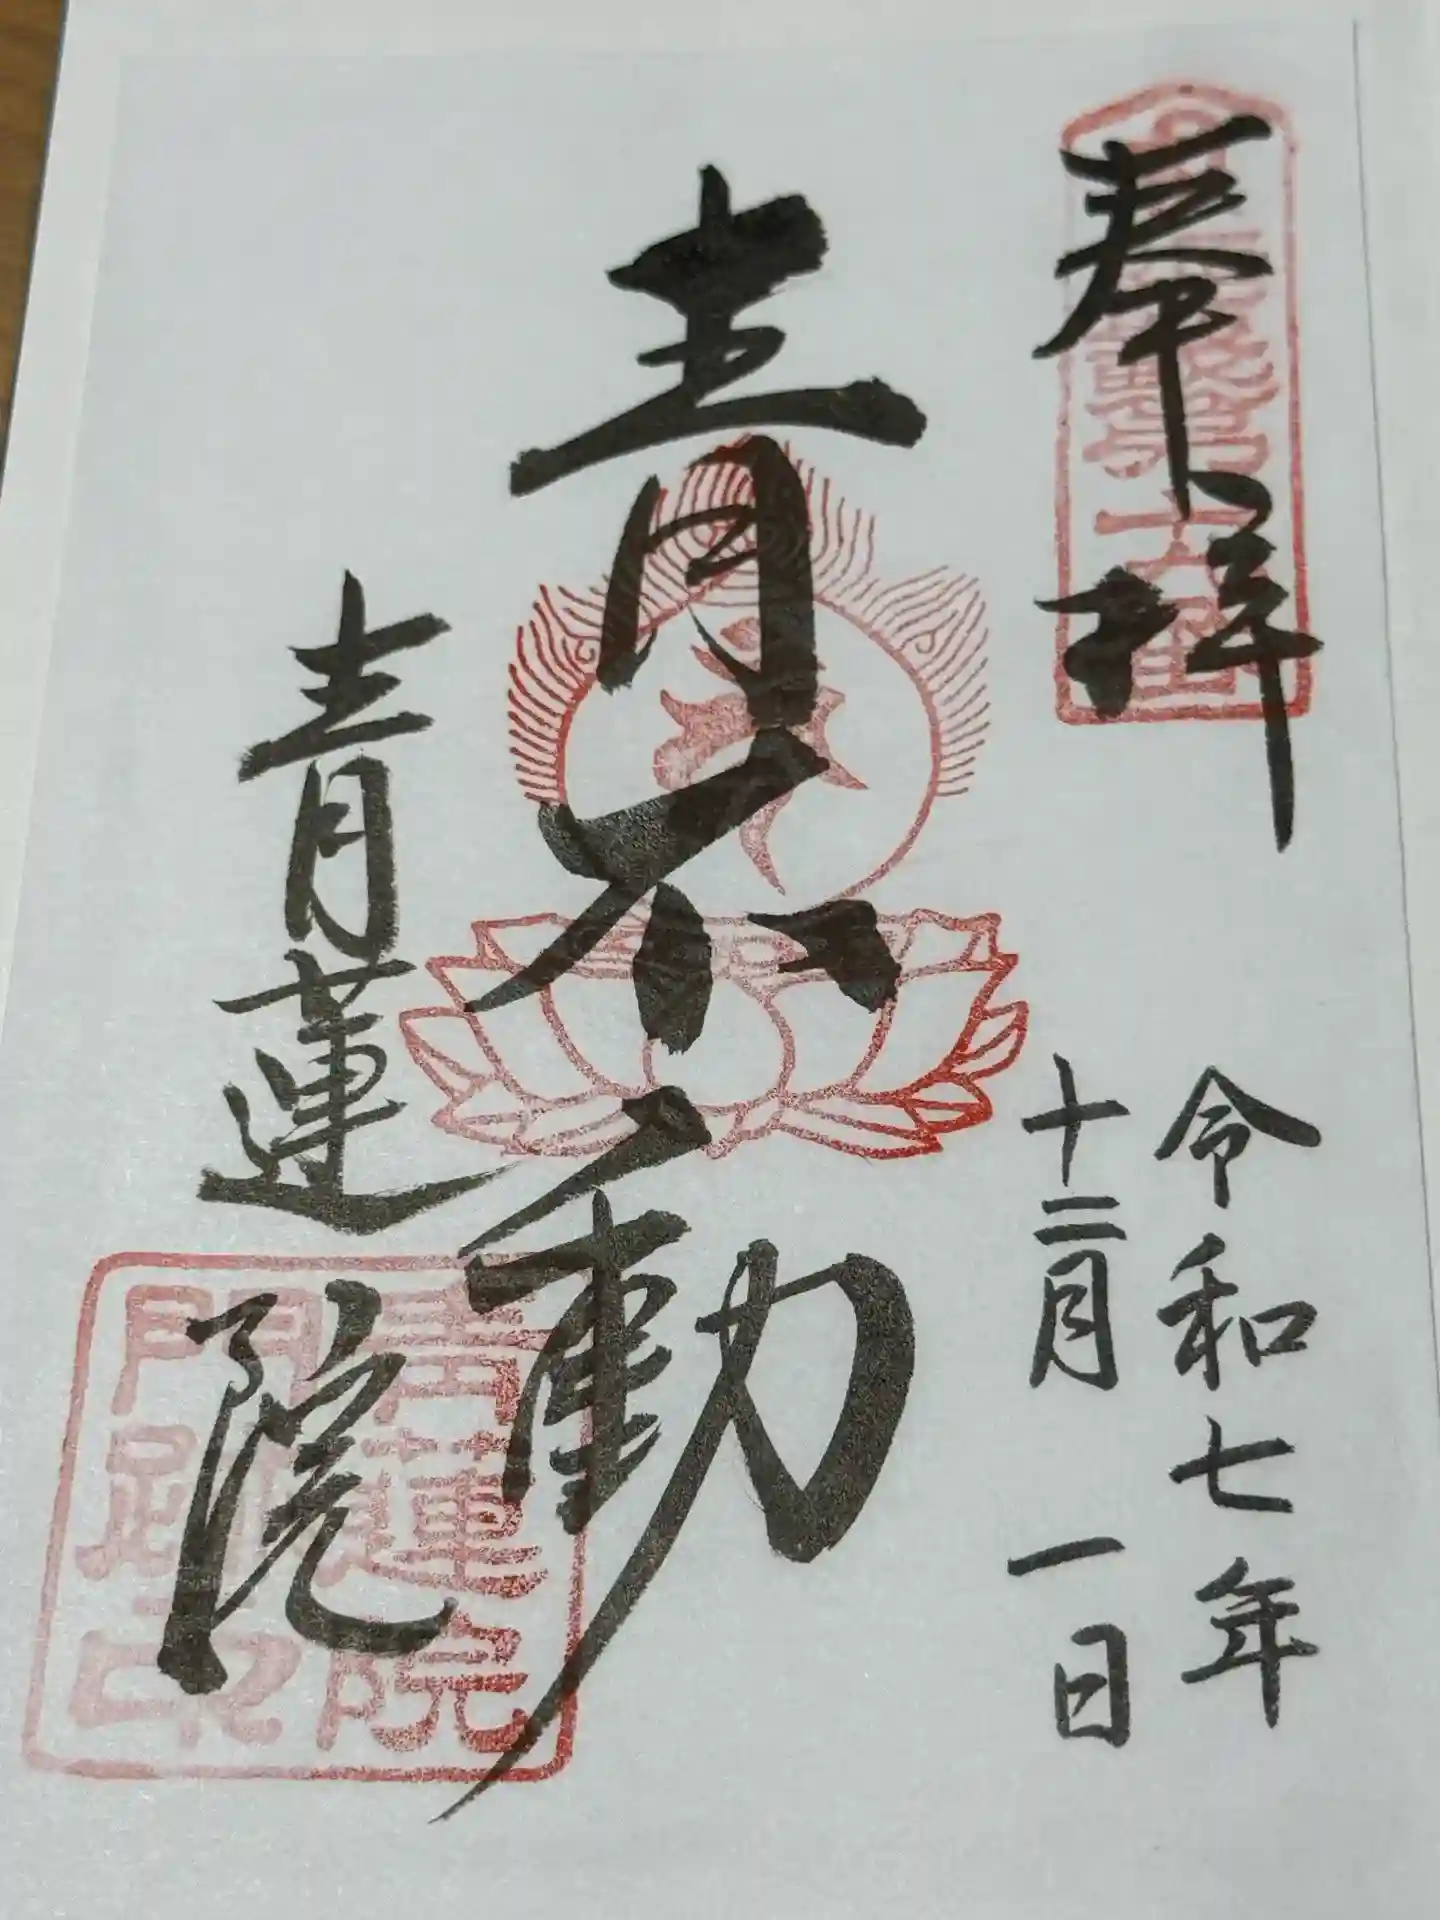 奉拝
令和七年
十二月一日
青不動
青蓮院
青蓮院
門跡之印